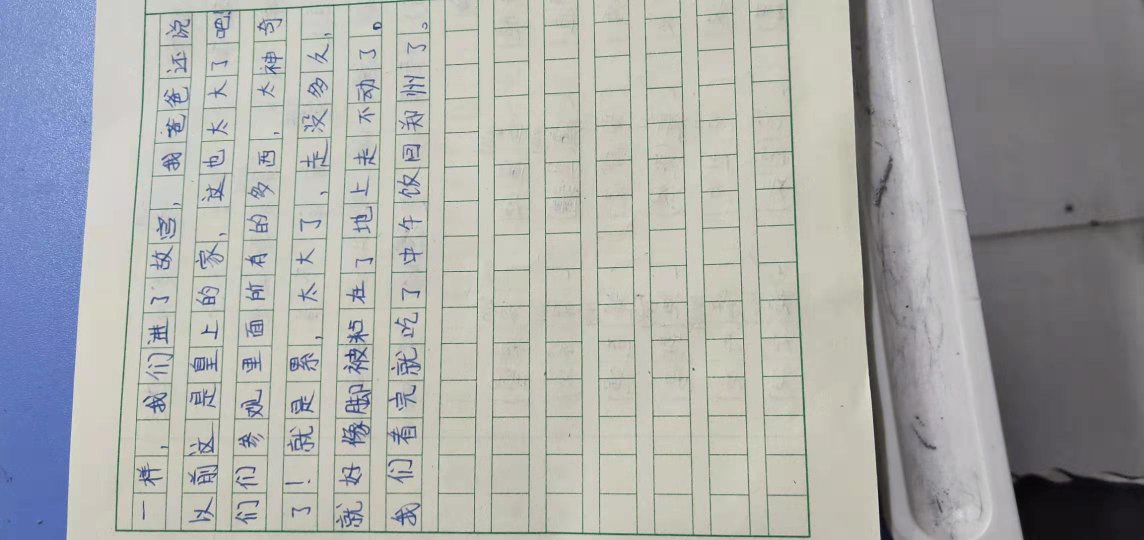 一样，我们进了故宫，我爸爸还说
以前这是皇上的家，这也太大了吧
们们参观里面所有的多西，太神奇
了！就是累，太大了，走没多久，
就好像脚被粘在了地上走不动了。
我们看完就吃了中午饭回郑州了。